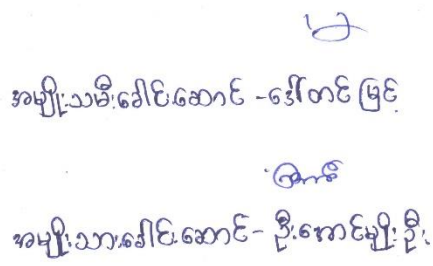 အမျိုးသမီးခေါင်းဆောင် - ဒေါ်တင်မြင့်
အမျိုးသားခေါင်းဆောင် - ဦးအောင်မျိုးဦး